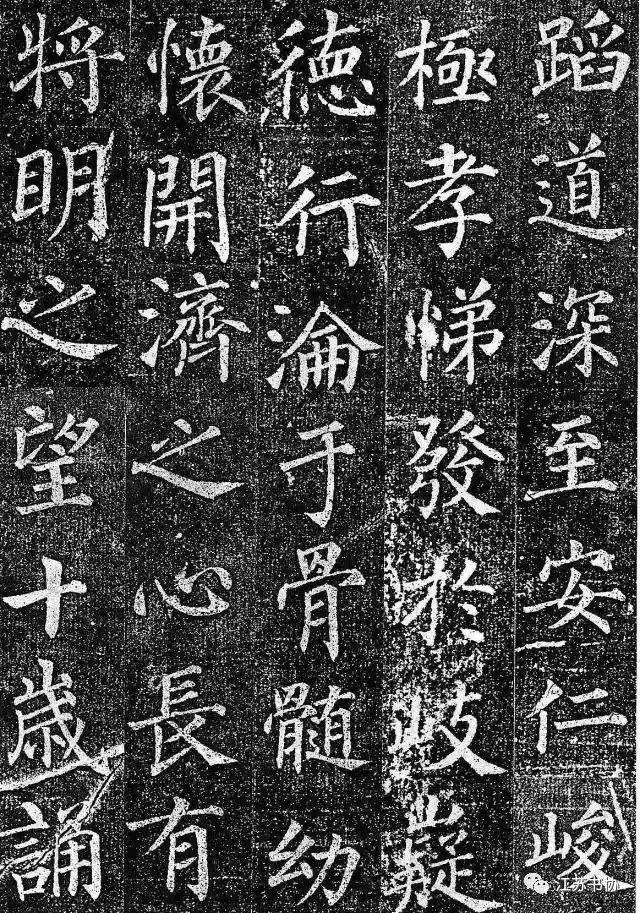 蹈道深至安仁峻
極孝悌發於岐嶷
德行淪于骨髓幼
懐開濟之心長有
將明之望十歳誦
江苏书协